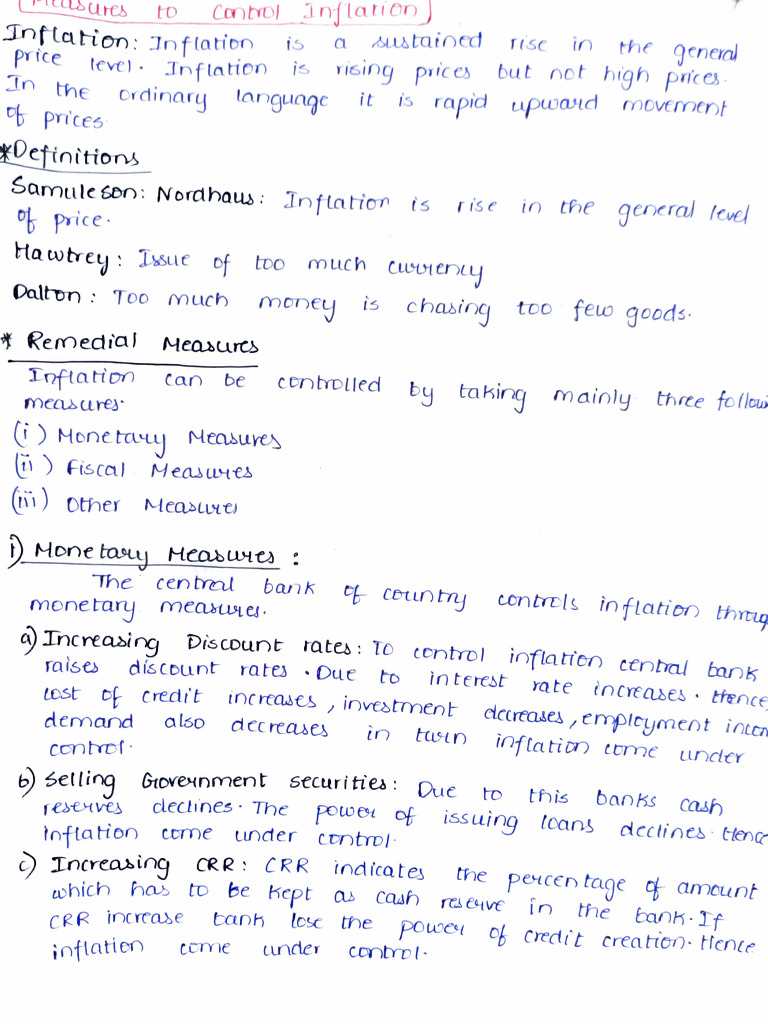 Measures to Control Inflation
Inflation: Inflation is a sustained rise in the general
price level. Inflation is rising prices but not high prices.
In the ordinary language it is rapid upward movement
of prices
*Definitions
Samuleson: Nordhaus: Inflation is rise in the general level
of price.
Hawtrey: Issue of too much currency
Dalton: Too much money is chasing too few goods.
* Remedial Measures
Inflation can be controlled by taking mainly three follow
measures.
(i) Monetary Measures
(ii) Fiscal Measures
(iii) Other Measures
i) Monetary Measures:
The central bank of country controls inflation throug
monetary measures.
a) Increasing Discount rates: To control inflation central bank
raises discount rates. Due to interest rate increases. Hence,
cost of credit increases, investment decreases, employment incom
demand also decreases in turn inflation come under
control.
b) Selling Government securities: Due to this banks cash
reserves declines. The power of issuing loans declines. Hence
inflation come under control.
c) Increasing CRR: CRR indicates the percentage of amount
which has to be kept as cash reserve in the bank. If
CRR increase bank lose the power of credit creation. Hence
inflation come under control.